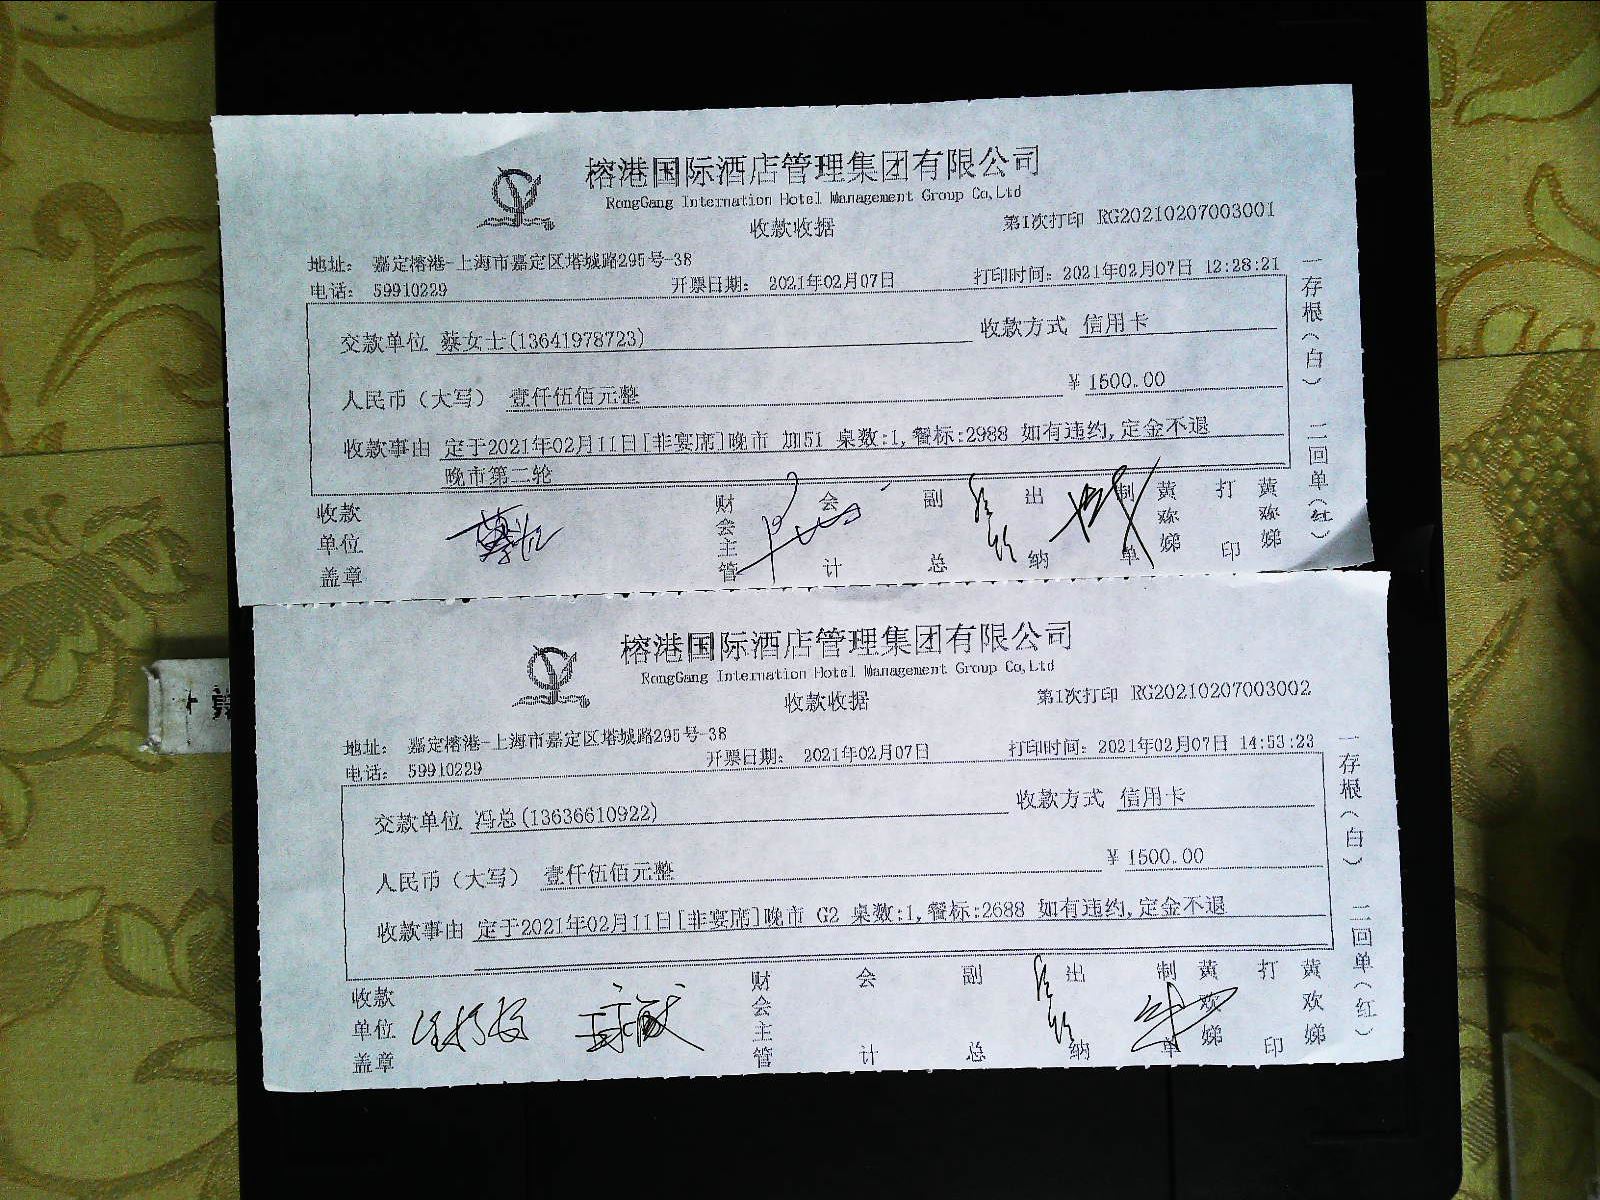 榕港国际酒店管理集团有限公司
RongGang Internation Hotel Management Group Co,Ltd
收款收据
第1次打印 RG20210207003001
地址： 嘉定榕港-上海市嘉定区塔城路295号-38
电话： 59910229 开票日期： 2021年02月07日 打印时间：2021年02月07日 12:28:21
交款单位 蔡女士(13641978723) 收款方式 信用卡
人民币（大写） 壹仟伍佰元整 ￥ 1500.00
收款事由 定于2021年02月11日[非宴席]晚市 加51 桌数:1,餐标:2988 如有违约,定金不退
晚市第二轮
收款单位盖章 财会主管 会计 副总 出纳 制单 黄欢娣 打印 黄欢娣
一存根（白） 二回单（红）
榕港国际酒店管理集团有限公司
RongGang Internation Hotel Management Group Co,Ltd
收款收据
第1次打印 RG20210207003002
地址： 嘉定榕港-上海市嘉定区塔城路295号-38
电话： 59910229 开票日期： 2021年02月07日 打印时间：2021年02月07日 14:53:23
交款单位 冯总(13636610922) 收款方式 信用卡
人民币（大写） 壹仟伍佰元整 ￥ 1500.00
收款事由 定于2021年02月11日[非宴席]晚市 G2 桌数:1,餐标:2688 如有违约,定金不退
收款单位盖章 财会主管 会计 副总 出纳 制单 黄欢娣 打印 黄欢娣
一存根（白） 二回单（红）